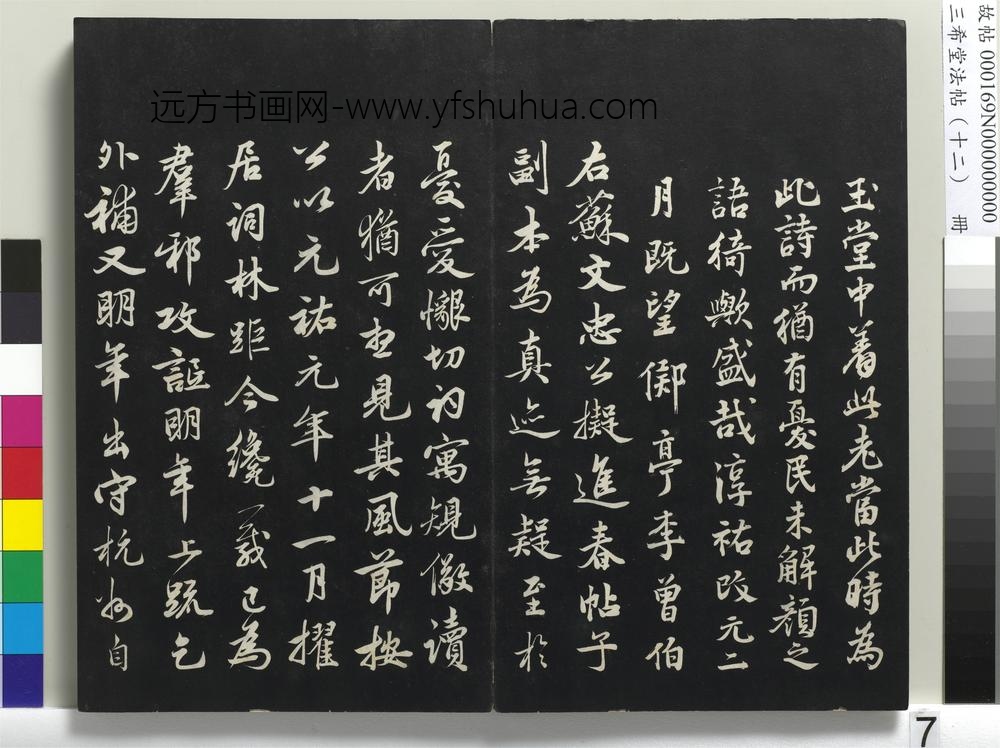 玉堂中着此老當此時為
此詩而猶有憂民未解顏之
語猗歟盛哉淳祐改元二
月既望鄊亭李曾伯
右蘇文忠公擬進春帖子
副本為真迹無疑至於
憂愛懇切初寓規儆讀
者猶可想見其風節按
公以元祐元年十一月擢
居詞林距今纔一載已為
羣邪攻詆明年上疏乞
外補又明年出守杭州自
远方书画网-www.yfshuhua.com
故帖 000169N000000000
三希堂法帖（十二） 冊
7